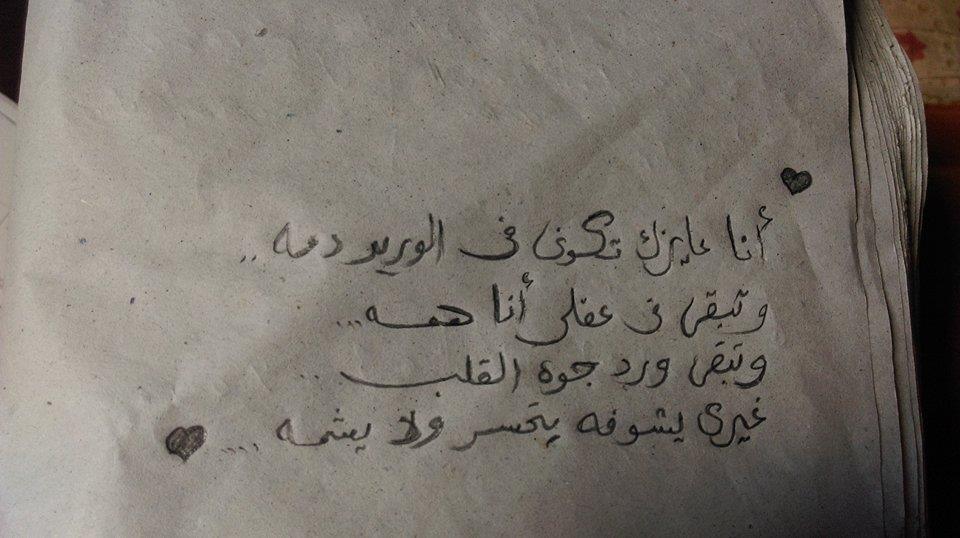 أنا عايزك تكونى فى الوريد دمه ..
وتبقى فى عقلى أنا همه ...
وتبقى ورد جوه القلب ...
غيرى يشوفه يتحسر ولا يشمه ....